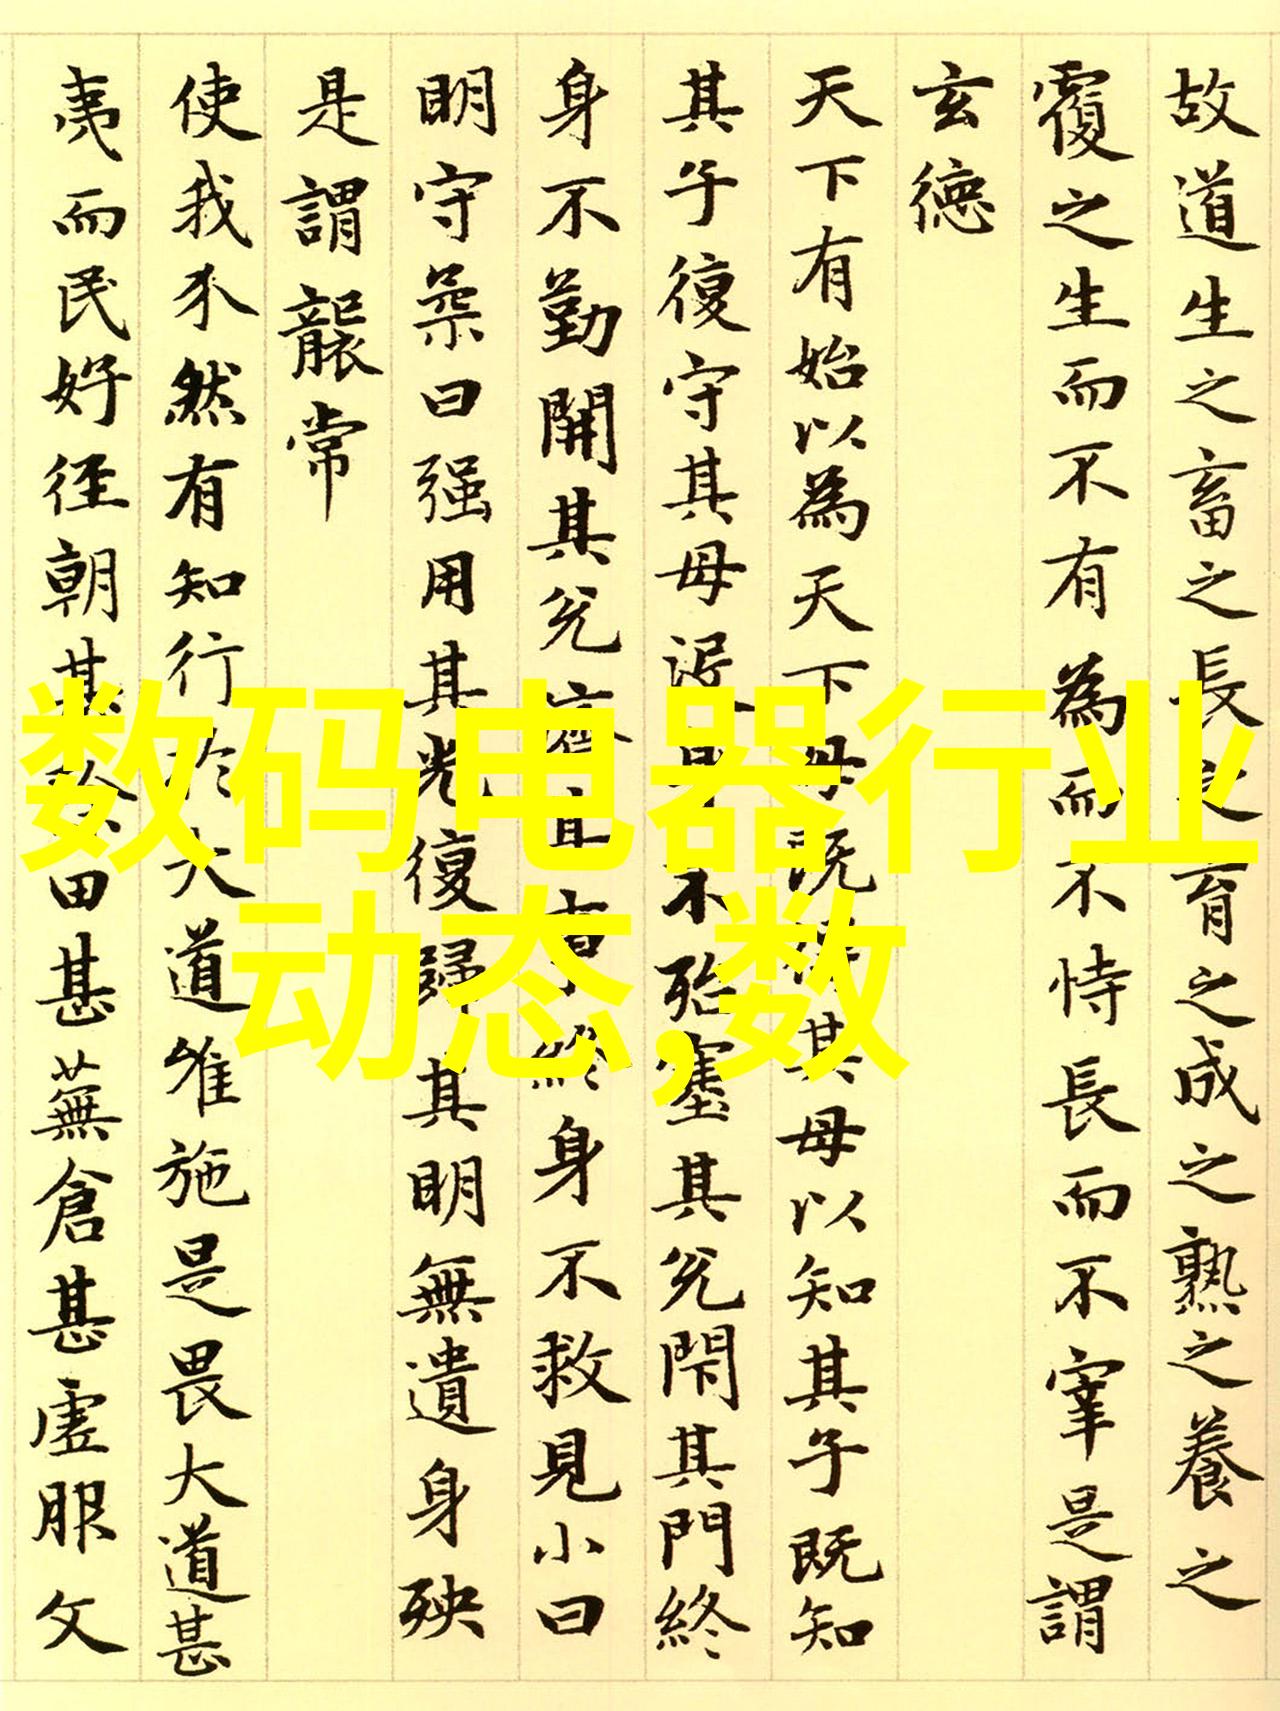 故道生之畜之長之育之成之熟之養之
覆之生而不有為而不恃長而不宰是謂
玄德
天下有始以為天下母既得其母以知其子既知
其子復守其母没身不殆塞其兊閇其門終
身不勤開其兊濟其事終身不救見小曰
明守柔曰强用其光復歸其明無遺身殃
是謂襲常
使我介然有知行於大道唯施是畏大道甚
夷而民好徑朝甚除田甚蕪倉甚虛服文
数码电器行业
动态,数